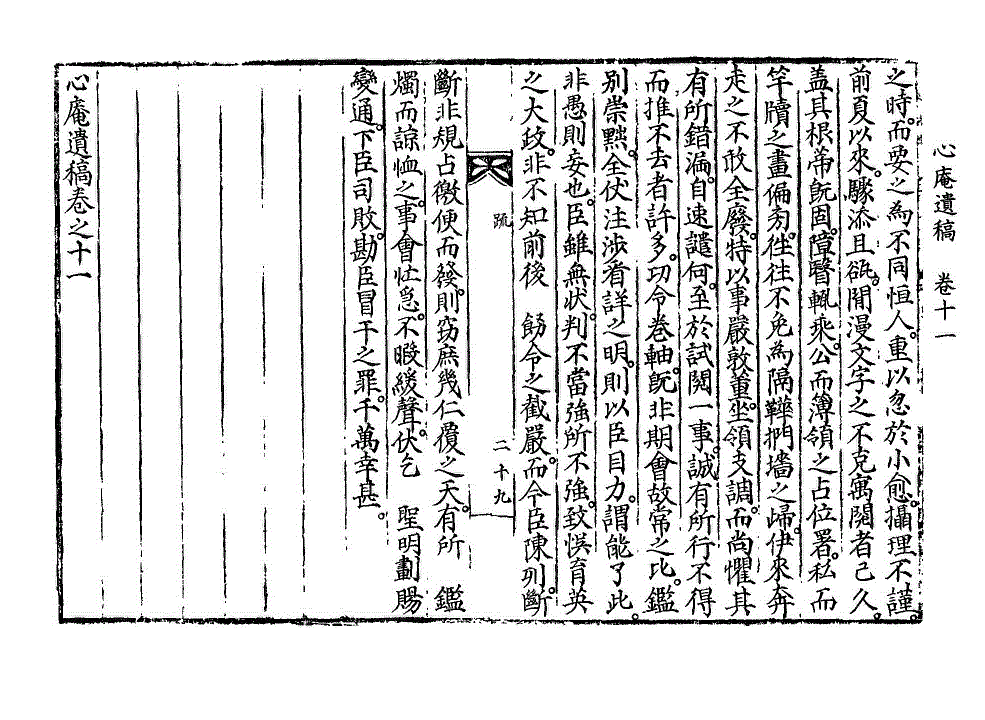 心庵遺稿　卷十一
之時。而要之爲不同恒人。重以忽於小愈。攝理不謹。
前夏以來。驟添且瓻。閒漫文字之不克寓閱者已久。
盖其根蔕旣固。障瞖輒乘。公而簿領之占位署。私而
竿牘之畫偏旁。徃徃不免爲隔鞾捫墻之歸。伊來奔
走之不敢全廢。特以事嚴敦董。坐領支調。而尙懼其
有所錯漏。自速譴何。至於試閱一事。誠有所行不得
而推不去者許多。功令卷軸。旣非期會故常之比。鑑
別崇黙。全伏注涉看詳之明。則以臣目力。謂能了此。
非愚則妄也。臣雖無狀。判不當強所不強。致悞育英
之大政。非不知前後　飭令之截嚴。而今臣陳列。斷
疏
二十九
斷非規占儌便而發。則窃庶幾仁覆之天。有所　鑑
燭而諒恤之。事會忙急。不暇緩聲。伏乞　聖明劃賜
變通。下臣司敗。勘臣冒干之罪。千萬幸甚。
心庵遺稿卷之十一